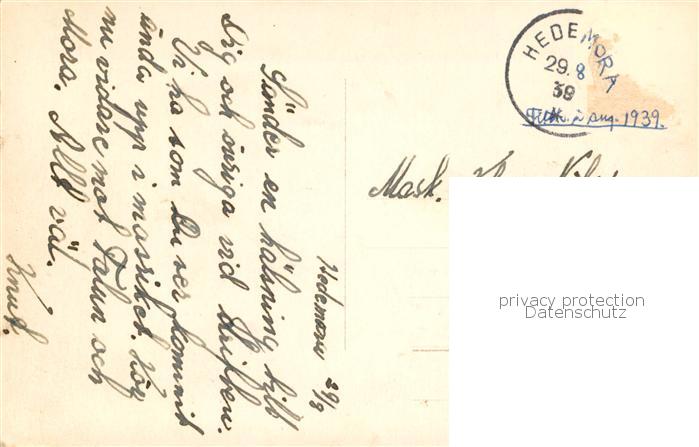 Hedemora 29/8
Sänder en hälsning till
Dig och övriga vid driften.
Vi ha som Du ser kommit
ända upp i masriket. Kör
nu vidare mot Falun och
Mora. Allt väl.
Knut.
HEDEMORA
29. 8
39
aug. 1939.
Mask.
privacy protection
Datenschutz